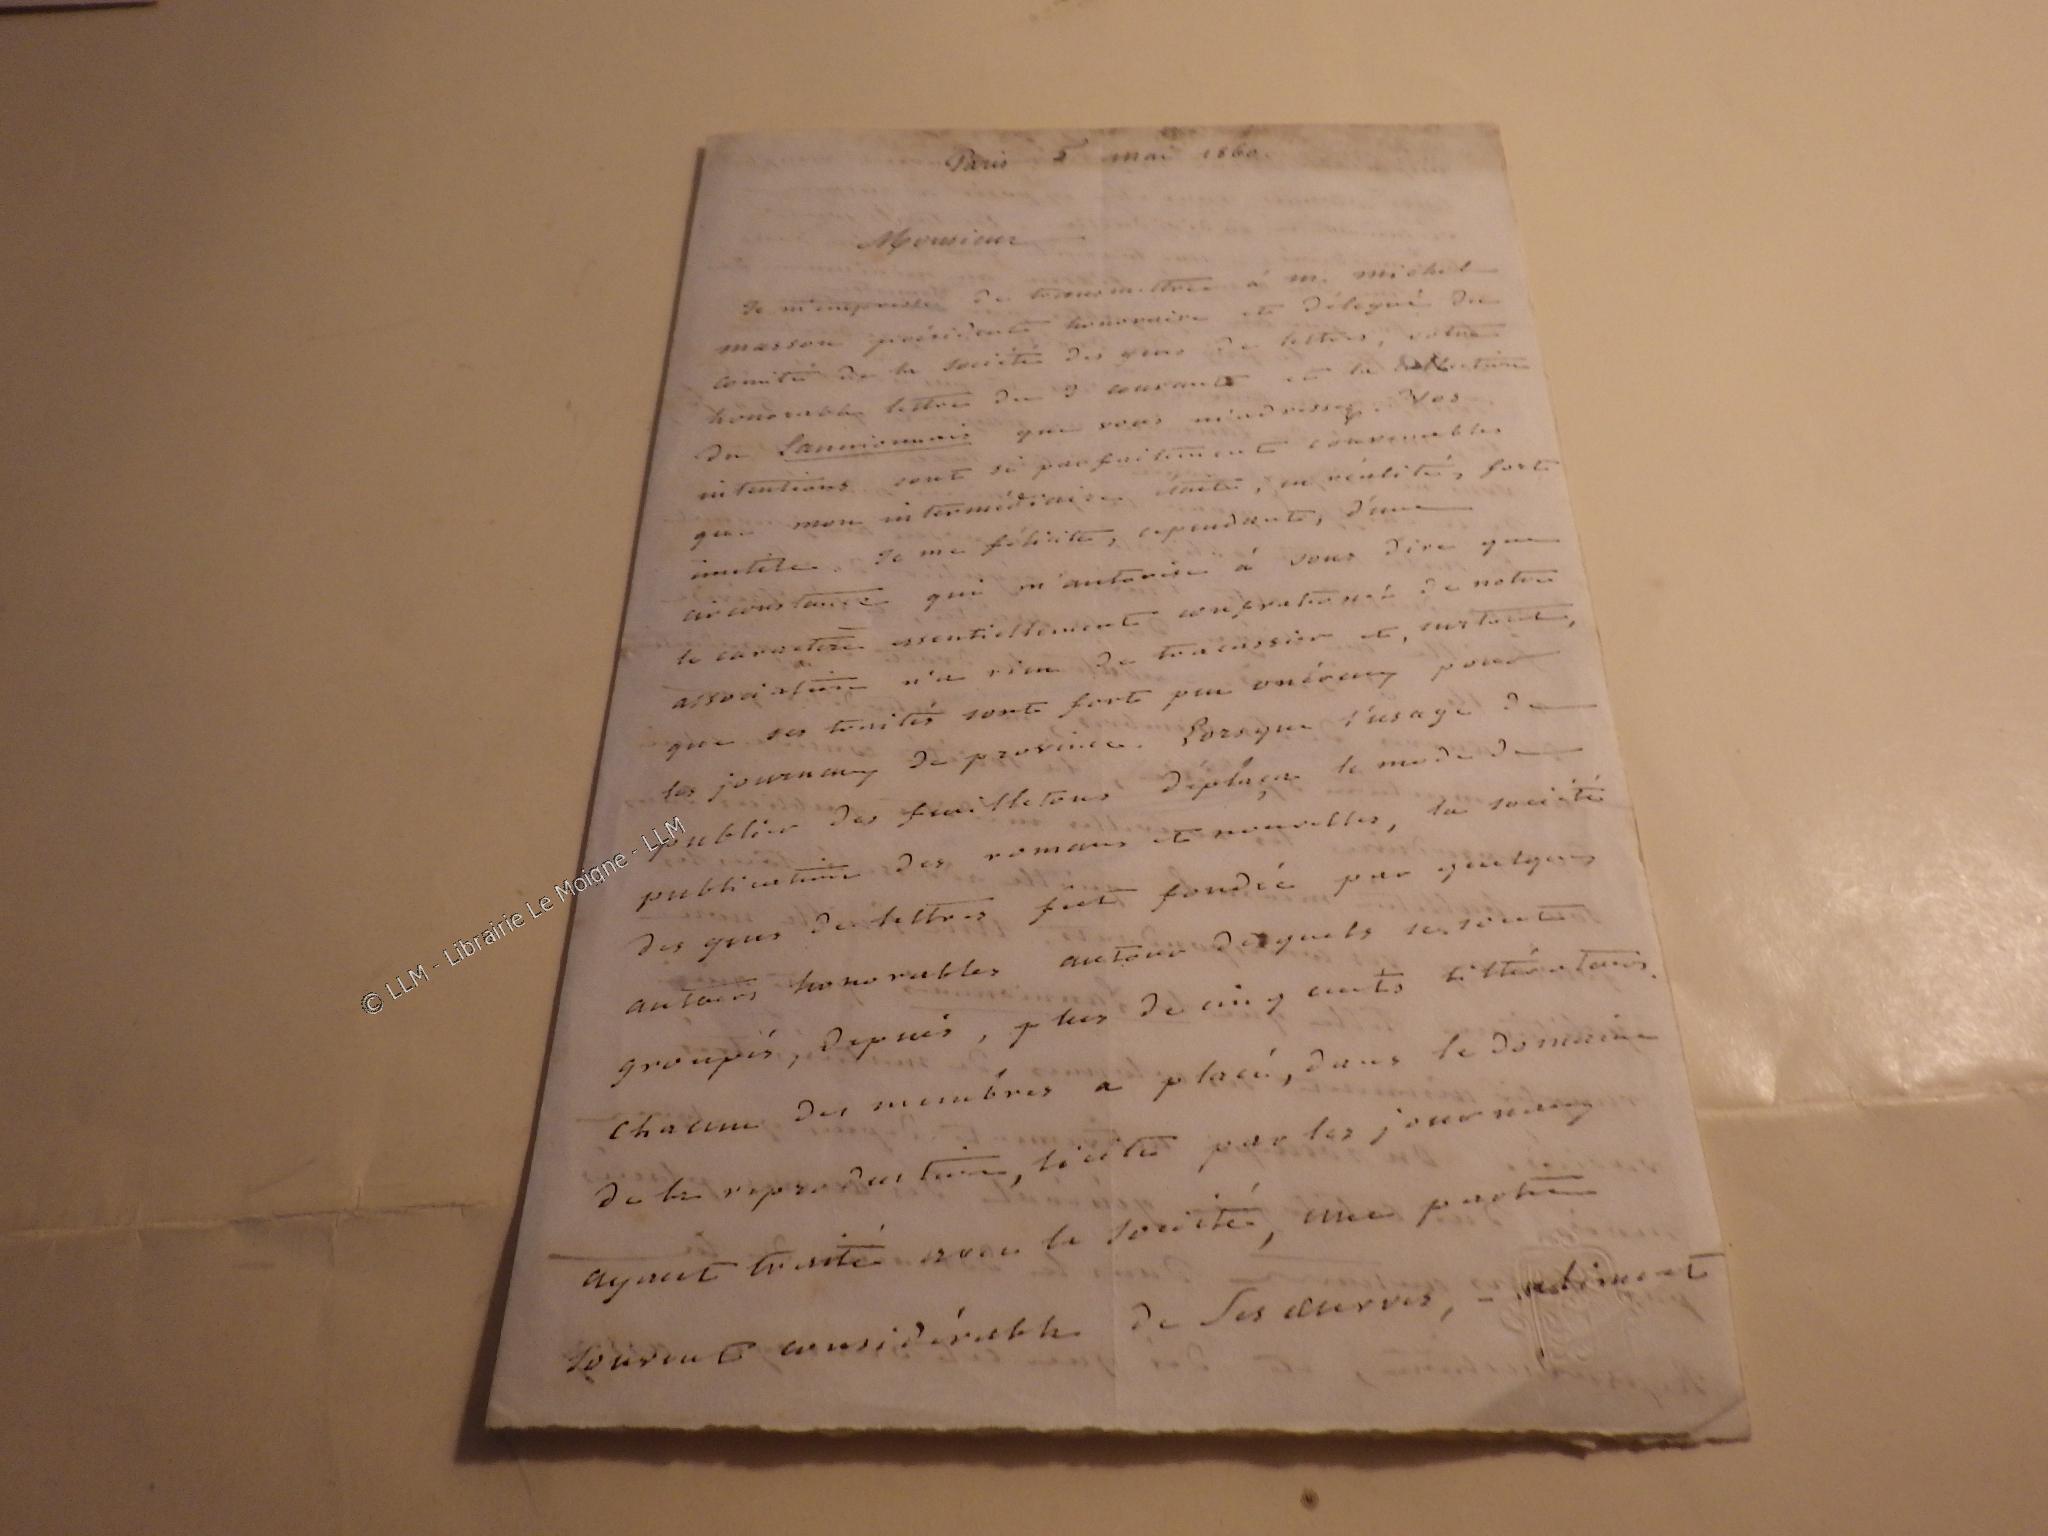 Paris 5 mai 1860.
Monsieur
Je m'empresse de transmettre à m. michel
masson président honoraire et délégué du
comité de la société des gens de lettres, votre
honorable lettre du 3 courant et la collection
du Lannionnais que vous m'adressez. Vos
intentions sont si parfaitement convenables
que mon intermédiaire était, en réalité, fort
inutile. Je me félicite, cependant, d'une
circonstance qui m'autorise à vous dire que
le caractère essentiellement confraternel de notre
association n'a rien de tracassier et, surtout,
que ses traités sont fort peu onéreux pour
les journaux de province. Lorsque l'usage de
publier des feuilletons déplaça le mode de
publication des romans et nouvelles, la société
des gens de lettres fut fondée par quelques
auteurs honorables autour desquels se sont
groupés, depuis, plus de cinq cents littérateurs.
Chacun des membres a placé, dans le domaine
de la reproduction, licite par les journaux
ayant traité avec la société, une partie
souvent considérable de ses œuvres, - aliment
© LLM - Librairie Le Moigne - LLM